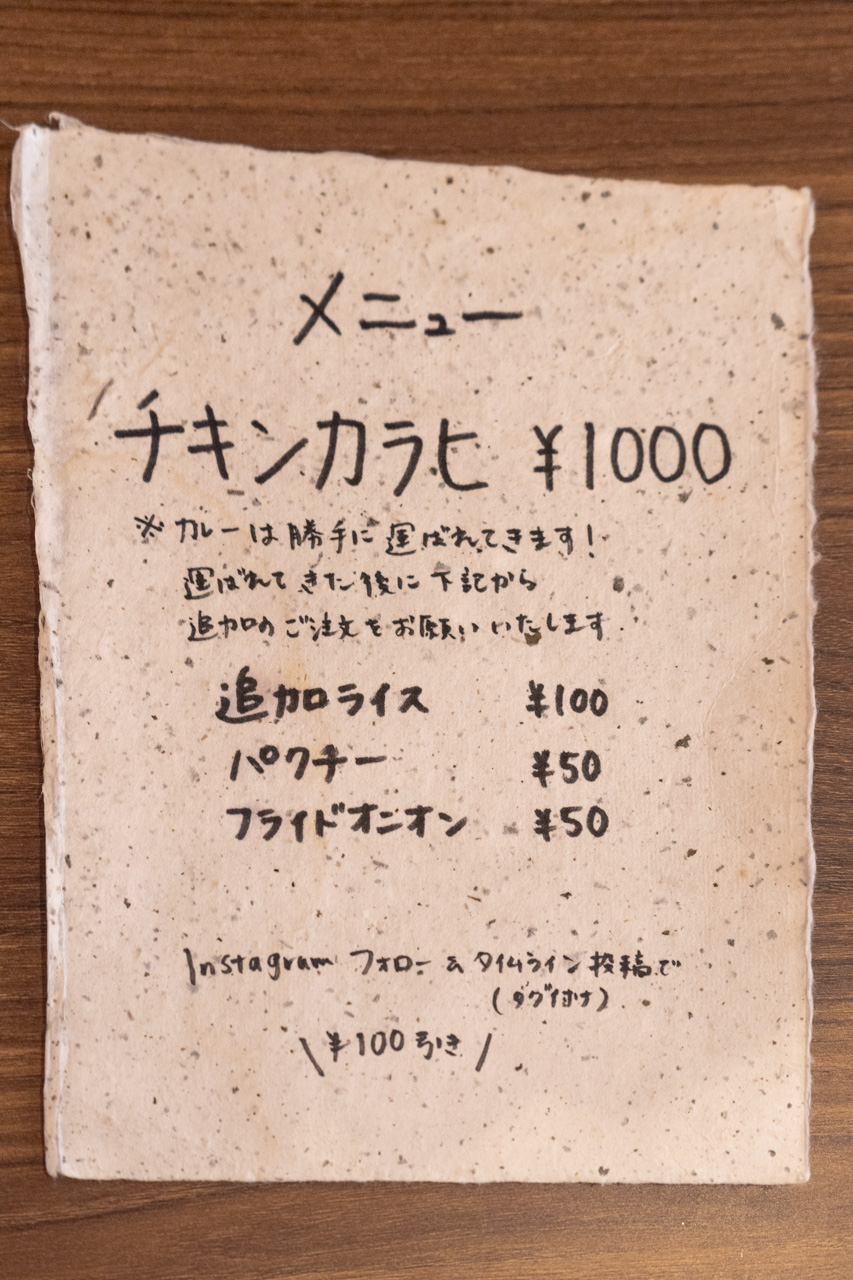 メニュー
チキンカラヒ ¥1000
※ カレーは勝手に運ばれてきます！
運ばれてきた後に下記から
追加のご注文をお願いいたします
追加ライス ¥100
パクチー ¥50
フライドオニオン ¥50
Instagram フォロー & タイムライン投稿で
(タグ付け)
\ ¥100引き /